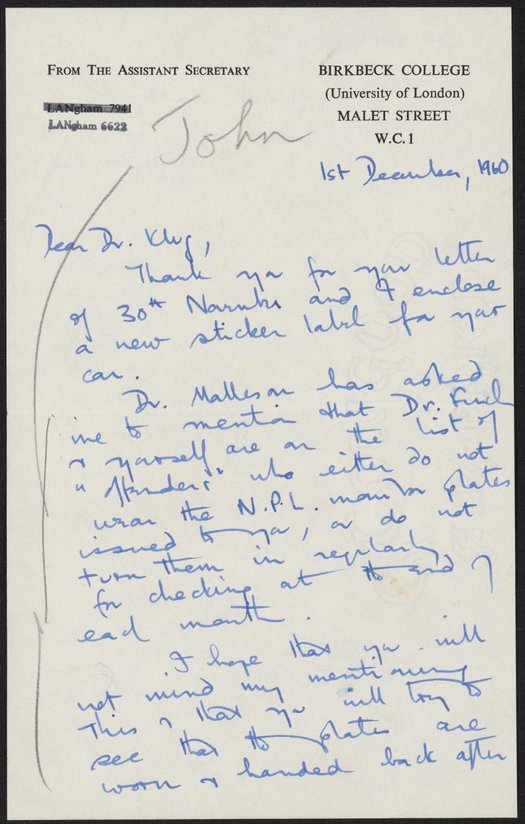 FROM THE ASSISTANT SECRETARY
BIRKBECK COLLEGE
(University of London)
MALET STREET
W.C.1
LANgham 7941
LANgham 6622
John
1st December, 1960
Dear Dr. Klug,
Thank you for your letter
of 30th November and I enclose
a new sticker label for your
car.
Dr. Malleson has asked
me to mention that Dr. Finch
& yourself are on the list of
"offenders" who either do not
wear the N.P.L. monitor plates
issued to you, or do not
turn them in regularly
for checking at the end of
each month.
I hope that you will
not mind my mentioning
this & that you will try to
see that the plates are
worn & handed back after